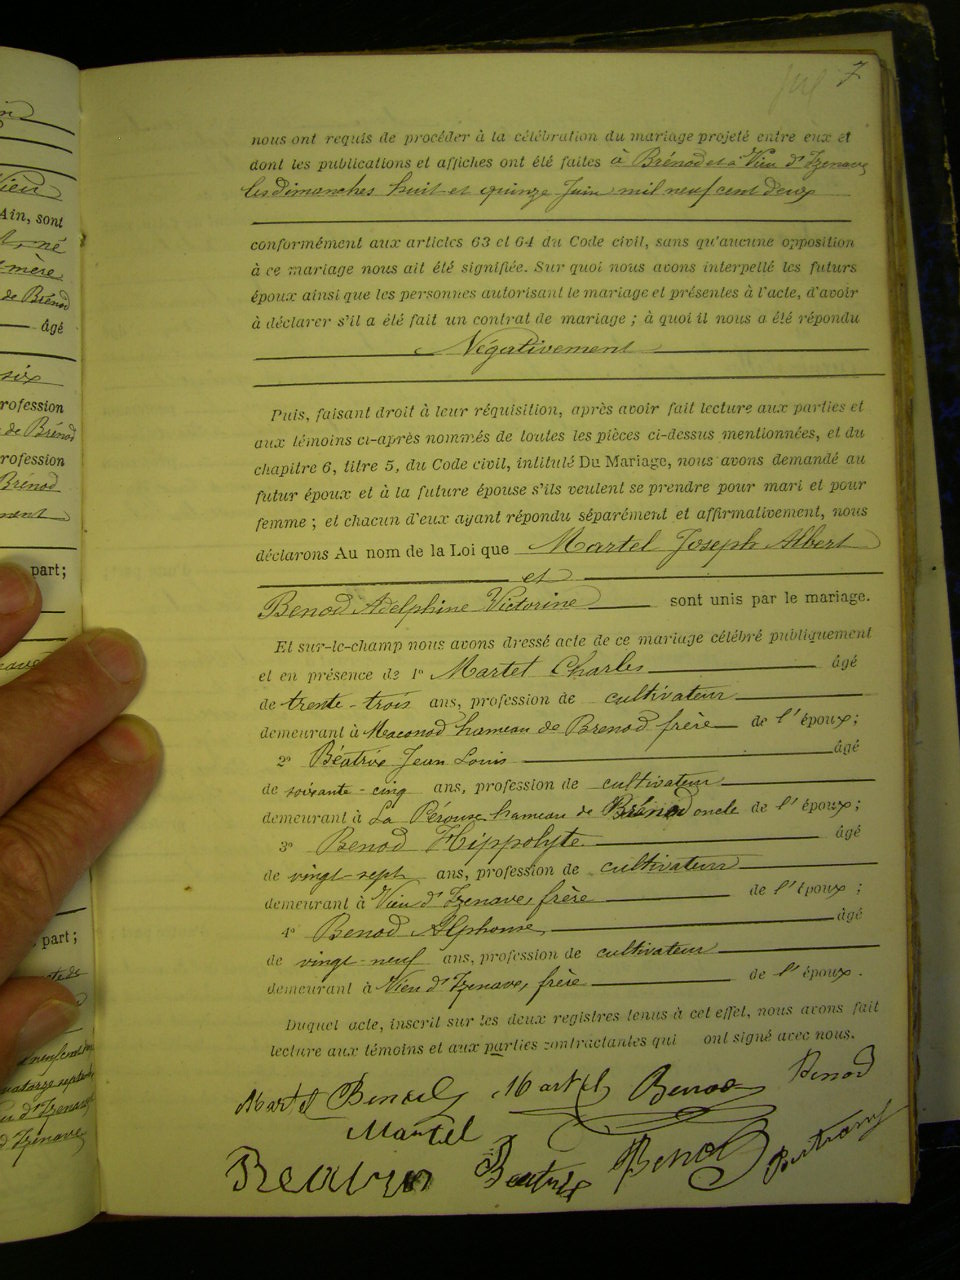 7
nous ont requis de procéder à la célébration du mariage projeté entre eux et
dont les publications et affiches ont été faites à Brénod et à Vieu d'Izenave
les dimanches huit et quinze Juin mil neuf cent deux
conformément aux articles 63 et 64 du Code civil, sans qu'aucune opposition
à ce mariage nous ait été signifiée. Sur quoi nous avons interpellé les futurs
époux ainsi que les personnes autorisant le mariage et présentes à l'acte, d'avoir
à déclarer s'il a été fait un contrat de mariage ; à quoi il nous a été répondu
Négativement
Puis, faisant droit à leur réquisition, après avoir fait lecture aux parties et
aux témoins ci-après nommés de toutes les pièces ci-dessus mentionnées, et du
chapitre 6, titre 5, du Code civil, intitulé Du Mariage, nous avons demandé au
futur époux et à la future épouse s'ils veulent se prendre pour mari et pour
femme ; et chacun d'eux ayant répondu séparément et affirmativement, nous
déclarons Au nom de la Loi que Martel Joseph Albert
et
Benod Adelphine Victorine sont unis par le mariage.
Et sur-le-champ nous avons dressé acte de ce mariage célébré publiquement
et en présence de 1° Martel Charles âgé
de trente-trois ans, profession de cultivateur
demeurant à Maconod hameau de Brenod frère de l'époux;
2° Béatrix Jean Louis âgé
de soixante-cinq ans, profession de cultivateur
demeurant à La Pérouse hameau de Brénod oncle de l'époux;
3° Benod Hippolyte âgé
de vingt-sept ans, profession de cultivateur
demeurant à Vieu d'Izenave, frère de l'époux ;
4° Benod Alphonse âgé
de vingt-neuf ans, profession de cultivateur
demeurant à Vieu d'Izenave, frère de l'époux.
Duquel acte, inscrit sur les deux registres tenus à cet effet, nous avons fait
lecture aux témoins et aux parties contractantes qui ont signé avec nous.
Martel Benod Martel Benod Benod
Martel
Béatrix Benod
Vieu
Ain, sont
né
mère
de Brénod
âgé
six
rofession
de Brénod
rofession
Brénod
part;
part;
d'Izenave
d'Izenave